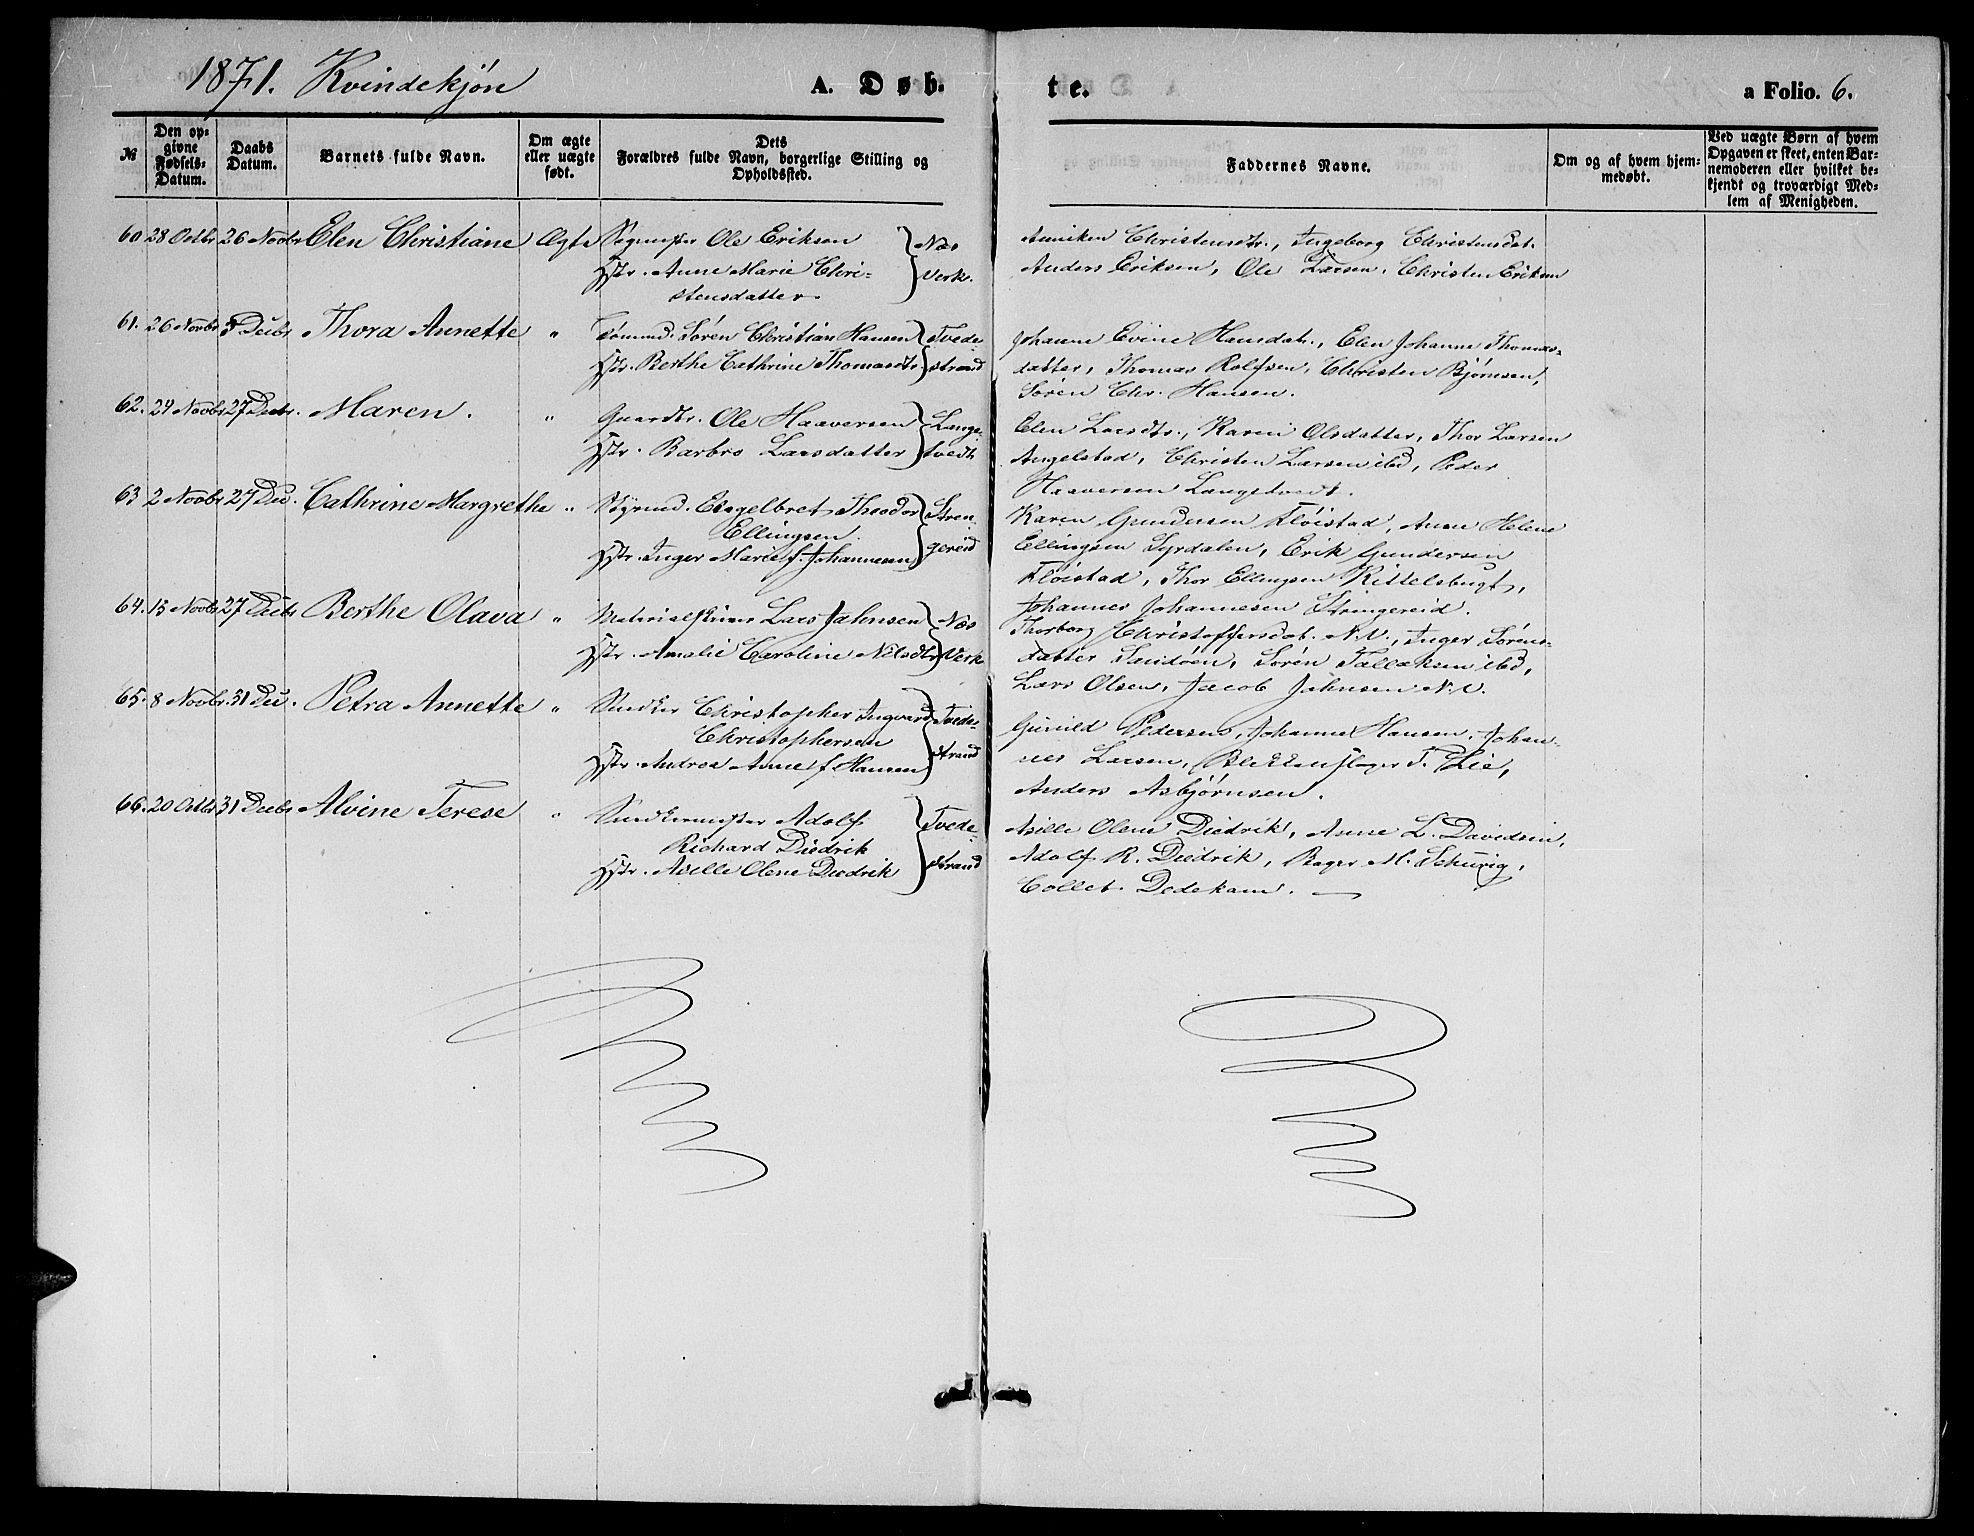 1871. Kvindekjøn
A. Døb-
te.
a Folio. 6.
№
Den op-
givne
Fødsels-
Datum.
Daabs
Datum.
Barnets fulde Navn.
Om ægte
eller uægte
født.
Dets
Forældres fulde Navn, borgerlige Stilling og
Opholdssted.
Faddernes Navne.
Om og af hvem hjem-
medøbt.
Ved uægte Børn af hvem
Opgaven er skeet, enten Bar-
nemoderen eller hvilket be-
kjendt og troværdigt Med-
lem af Menigheden.
60 28 Octbr 26 Novbr Elen Christiane Ægte Ole Eriksen Næs
Hstr. Anne Marie Chri- Verk.
stensdatter.
Anniken Christensdtr., Ingeborg Christensdat.
Anders Eriksen, Ole Larsen, Christen Eriksen
61. 26 Novbr 3 Decbr Thora Annette " Sømand. Søren Christian Hansen Tvede-
Hstr. Berthe Cathrine Thomasdtr strand
Johanne Evine Hansdatr., Elen Johanne Thomas-
datter, Thomas Rolfsen, Christen Bjørnsen,
Søren Chr. Hansen.
62. 24 Novbr 27 Decbr. Maren. " Guardbr. Ole Haaversen Lange-
Hstr. Barbro Larsdatter tvedt
Elen Larsdtr., Karen Olsdatter, Thor Larsen
Angelstad, Christen Larsen ibd, Peder
Haaversen Langetvedt.
63 2 Novbr 27 Dec. Cathrine Margrethe " Styrmd. Engelbret Theodor Stren-
Ellingsen. gereid
Hstr. Inger Marie f. Johannesen
Karen Gundersen Fløistad, Anne Helene
Ellingsen Syrdalen, Erik Gundersen
Fløistad, Thor Ellingsen Kittelsbugt,
Johannes Johannesen Strengereid.
64. 15 Novbr 27 Decbr Berthe Olava " Materialskriver Lars Jahnsen Næs
Hstr. Amalie Caroline Nilsdtr Verk
Thorborg Christoffersdat. N.V., Inger Sørens-
datter Sandøen, Søren Tallaksen ibd,
Lars Olsen, Jacob Jahnsen N.V.
65. 8 Novbr. 31 Dec. Petra Annette " Snedker Christopher Ingvard Tvede-
Christophersen strand
Hstr. Andrea Anne f. Hansen
Gunild Pedersen, Johanne Hansen, Johan-
nes Larsen, Blikkenslager T. Lie,
Anders Asbjørnsen.
66. 20 Octbr 31 Decbr Alvine Terese " Snedkermester Adolf Tvede-
Richard Diedrik strand
Hstr. Aselle Olene Diedrik
Aselle Olene Diedrik, Anne L. Davidsen,
Adolf R. Diedrik, Bager M. Schurig,
Collet Dedekam.